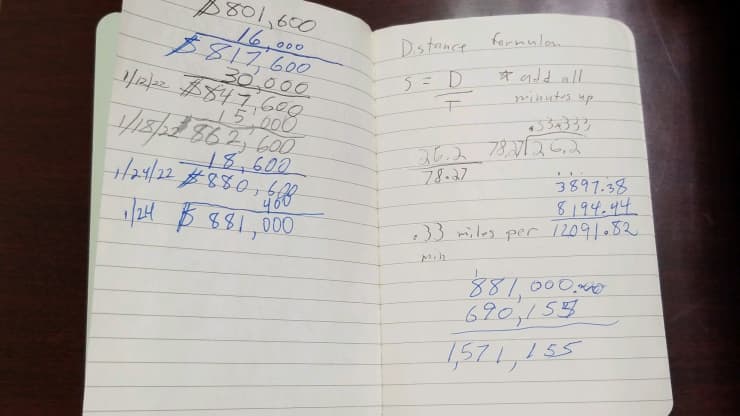 $801,600
16,000
$817,600
30,000
1/12/22 $847,600
15,000
1/18/22 $862,600
18,600
1/24/22 $880,600
400
1/24 $881,000
Distance formula
S = D
T
* add all
minutes up
.33333
26.2
78.27
78.27 26.2
3897.38
8194.44
12091.82
.33 miles per
min
1
881,000.00
690,155
1,571,155